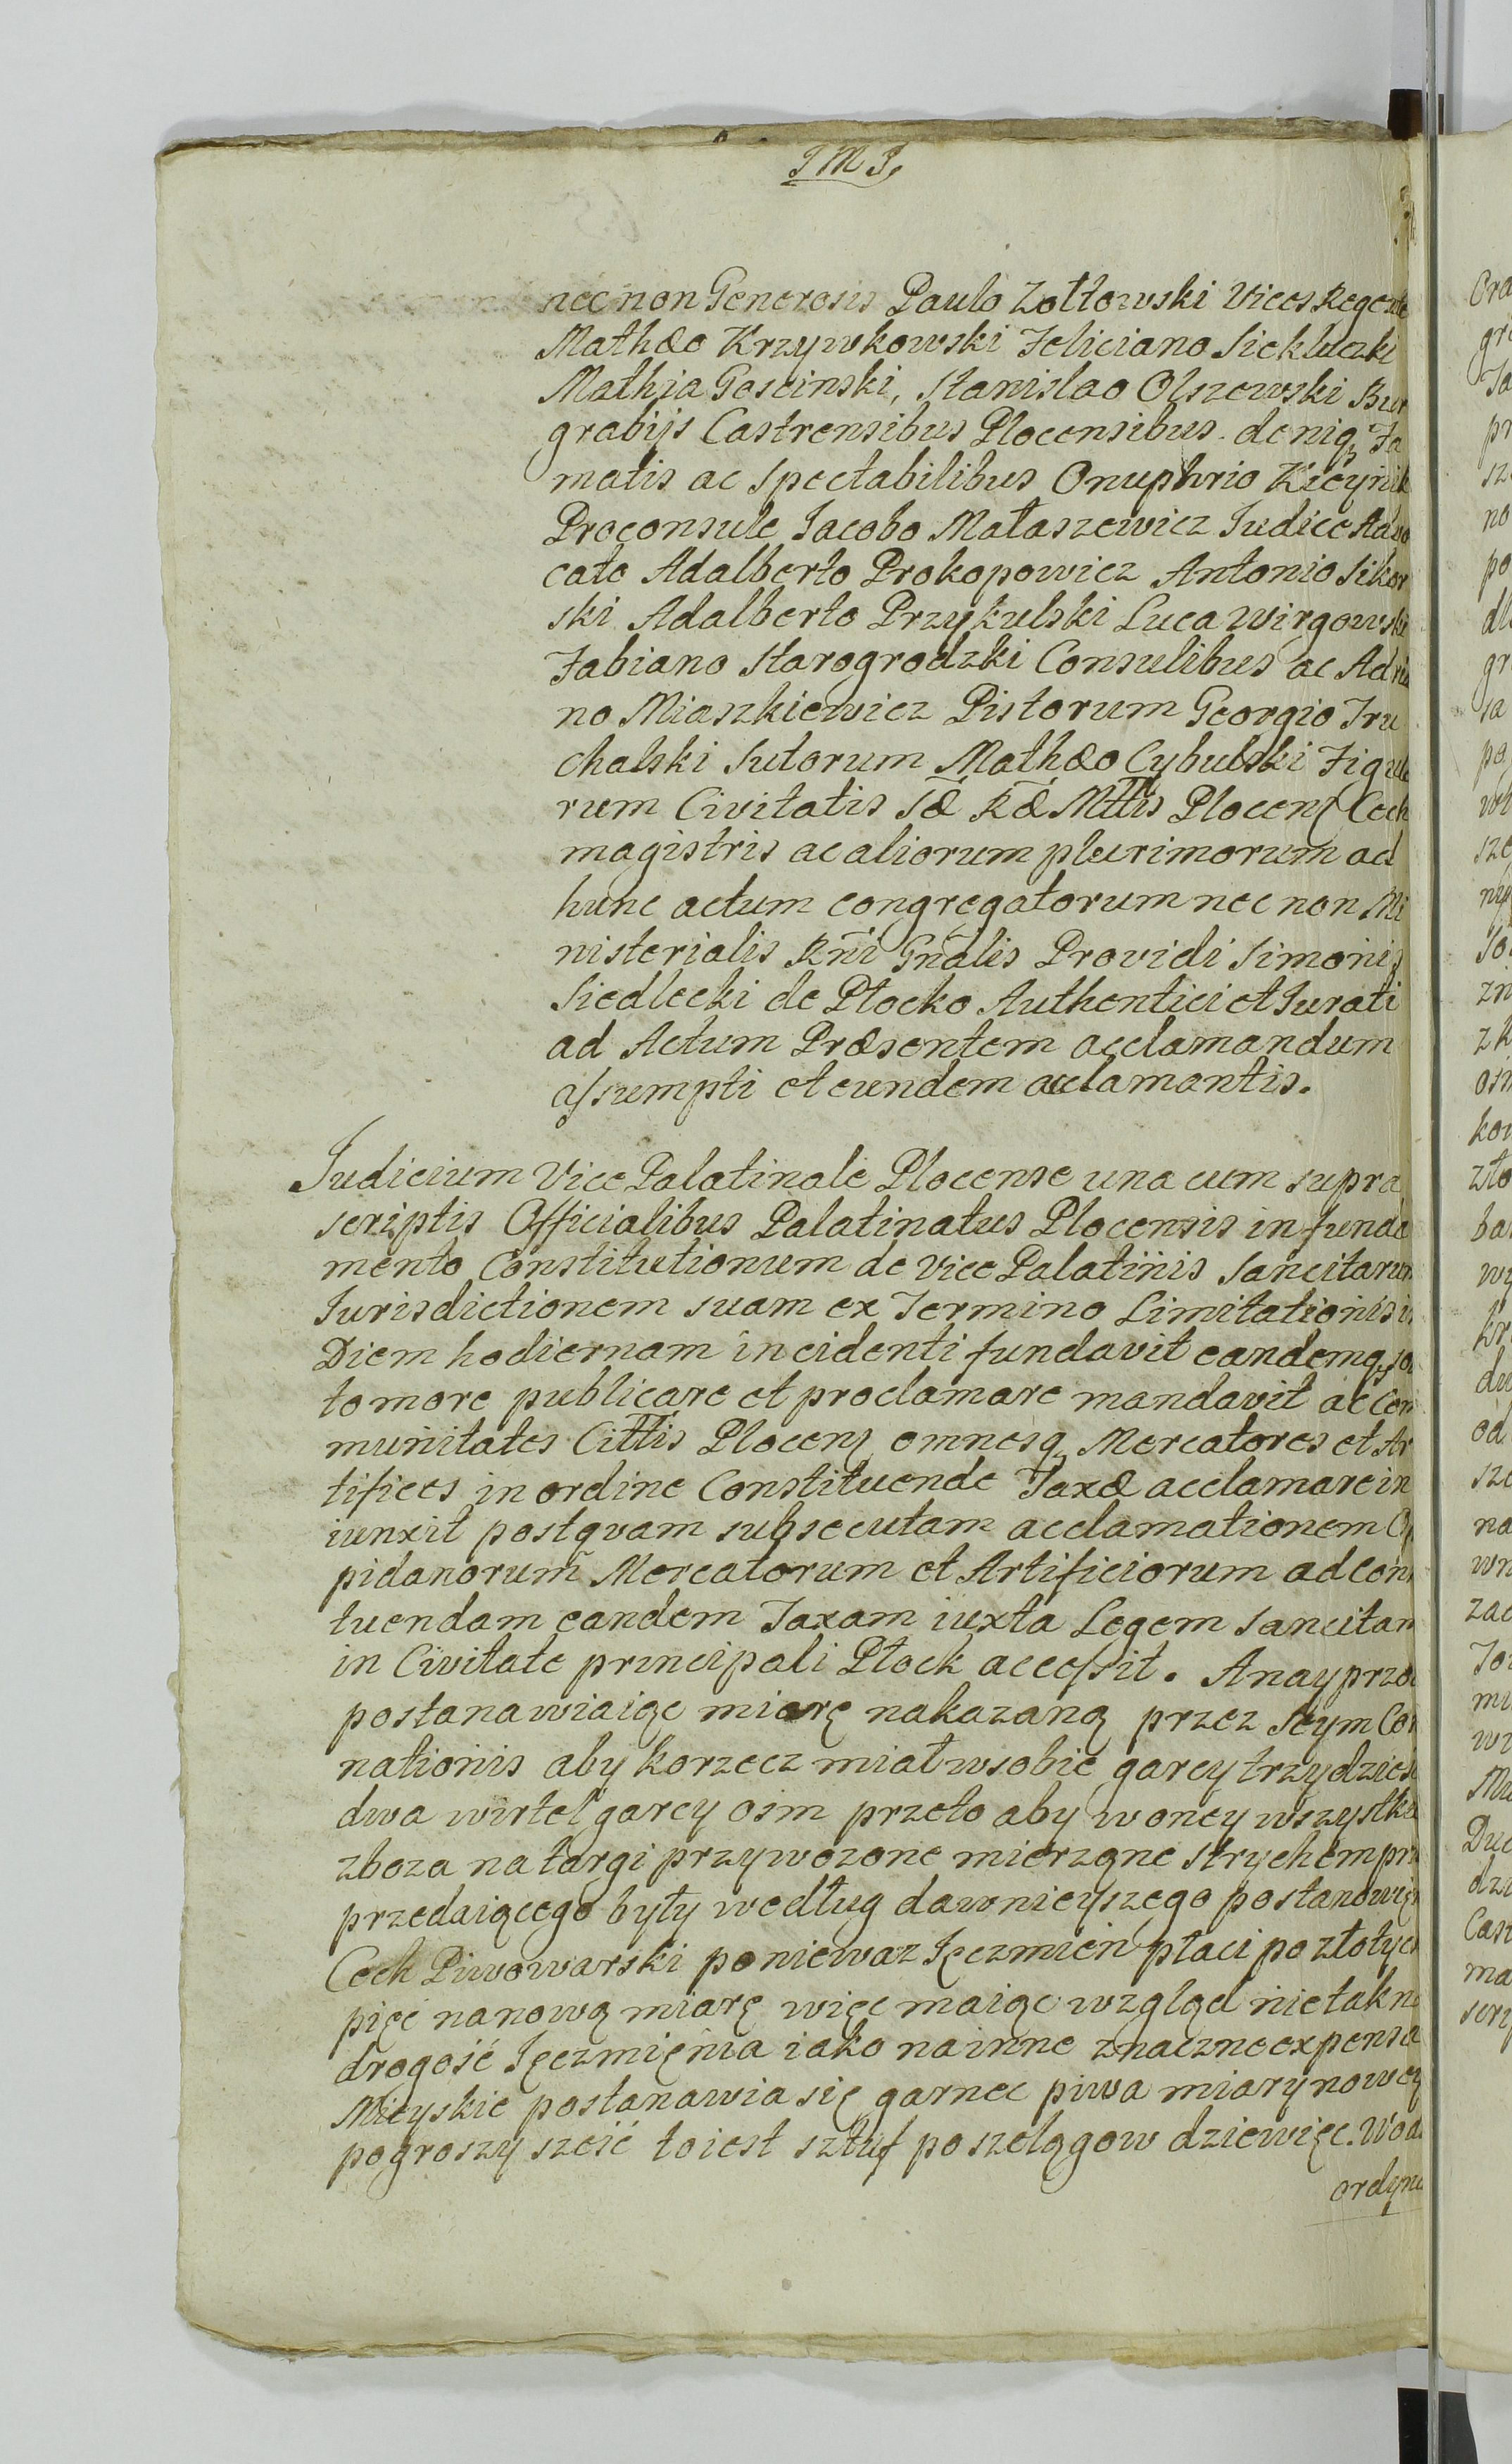 J M J,
nec non Generosis Paulo Zołtowski Vices Regente
Mathæo Krzywkowski Feliciano Siekluczki
Mathia Goscinski, Stanislao Olszewski Bur
grabijs Castrensibus Plocensibus. deniq Fa
matis ac Spectabilibus Onuphrio
Proconsule Jacobo Małaszewicz Judice Advo
cato Adalberto Prokopowicz Antonio Sikor
ski Adalberto Przykulski Luca Wirgowski
Fabiano Starogrodzki Consulibus ac Adria
no Miaszkiewicz Pistorum Georgio Tru
chalski Sutorum Mathæo Cybulski Figulo
rum Civitatis Sæ Ræ Mttis Plocens Cech
magistris ac aliorum plurimorum ad
hunc actum congregatorum nec non Mi
nisterialis Rni Gnalis Providi Simonis
Siedlecki de Płocko Authentici et Jurati
ad Actum Præsentem acclamandum
assumpti et eundem acclamantis.
Judicium Vice Palatinale Plocense una cum supra
scriptis Officialibus Palatinatus Plocensis in funda
mento Constitutionum de Vice Palatinis Sancitarum
Jurisdictionem suam ex Termino Limitationis in
Diem hodiernam incidenti fundavit eandemq so
to more publicare et proclamare mandavit ac Com
munitates Cittis Plocens omnesq Mercatores et Ar
tifices in ordine Constituende Taxæ acclamare in
iunxit postqvam subsecutam acclamationem Op
pidanorum Mercatorum et Artificiorum ad Con
tuendam eandem Taxam iuxta Legem Sancitam
in Civitate principali Płock accessit. A nayprzo
postanawiaiąc miarę nakazaną przez Seym Coro
nationis aby korzecz miał w sobie garcy trzydzieśc
dwa wirtel garcy osm przeto aby w oney wszystkie
zboza na targi przywozone mierzone strychem prze
przedaiącego były według dawnieyszego postanowię
Cech Piwowarski poniewaz Jęczmień płaci po złotych
pięc na nową miarę więc maiąc wzgląd nie tak na
drogość Jęczmięnia iako na inne znaczne expensa
Mieyskie postanawia się garnec piwa miary nowey
po groszy sześć to iest sztuf po szelągow dziewięc. Wod
ordyna